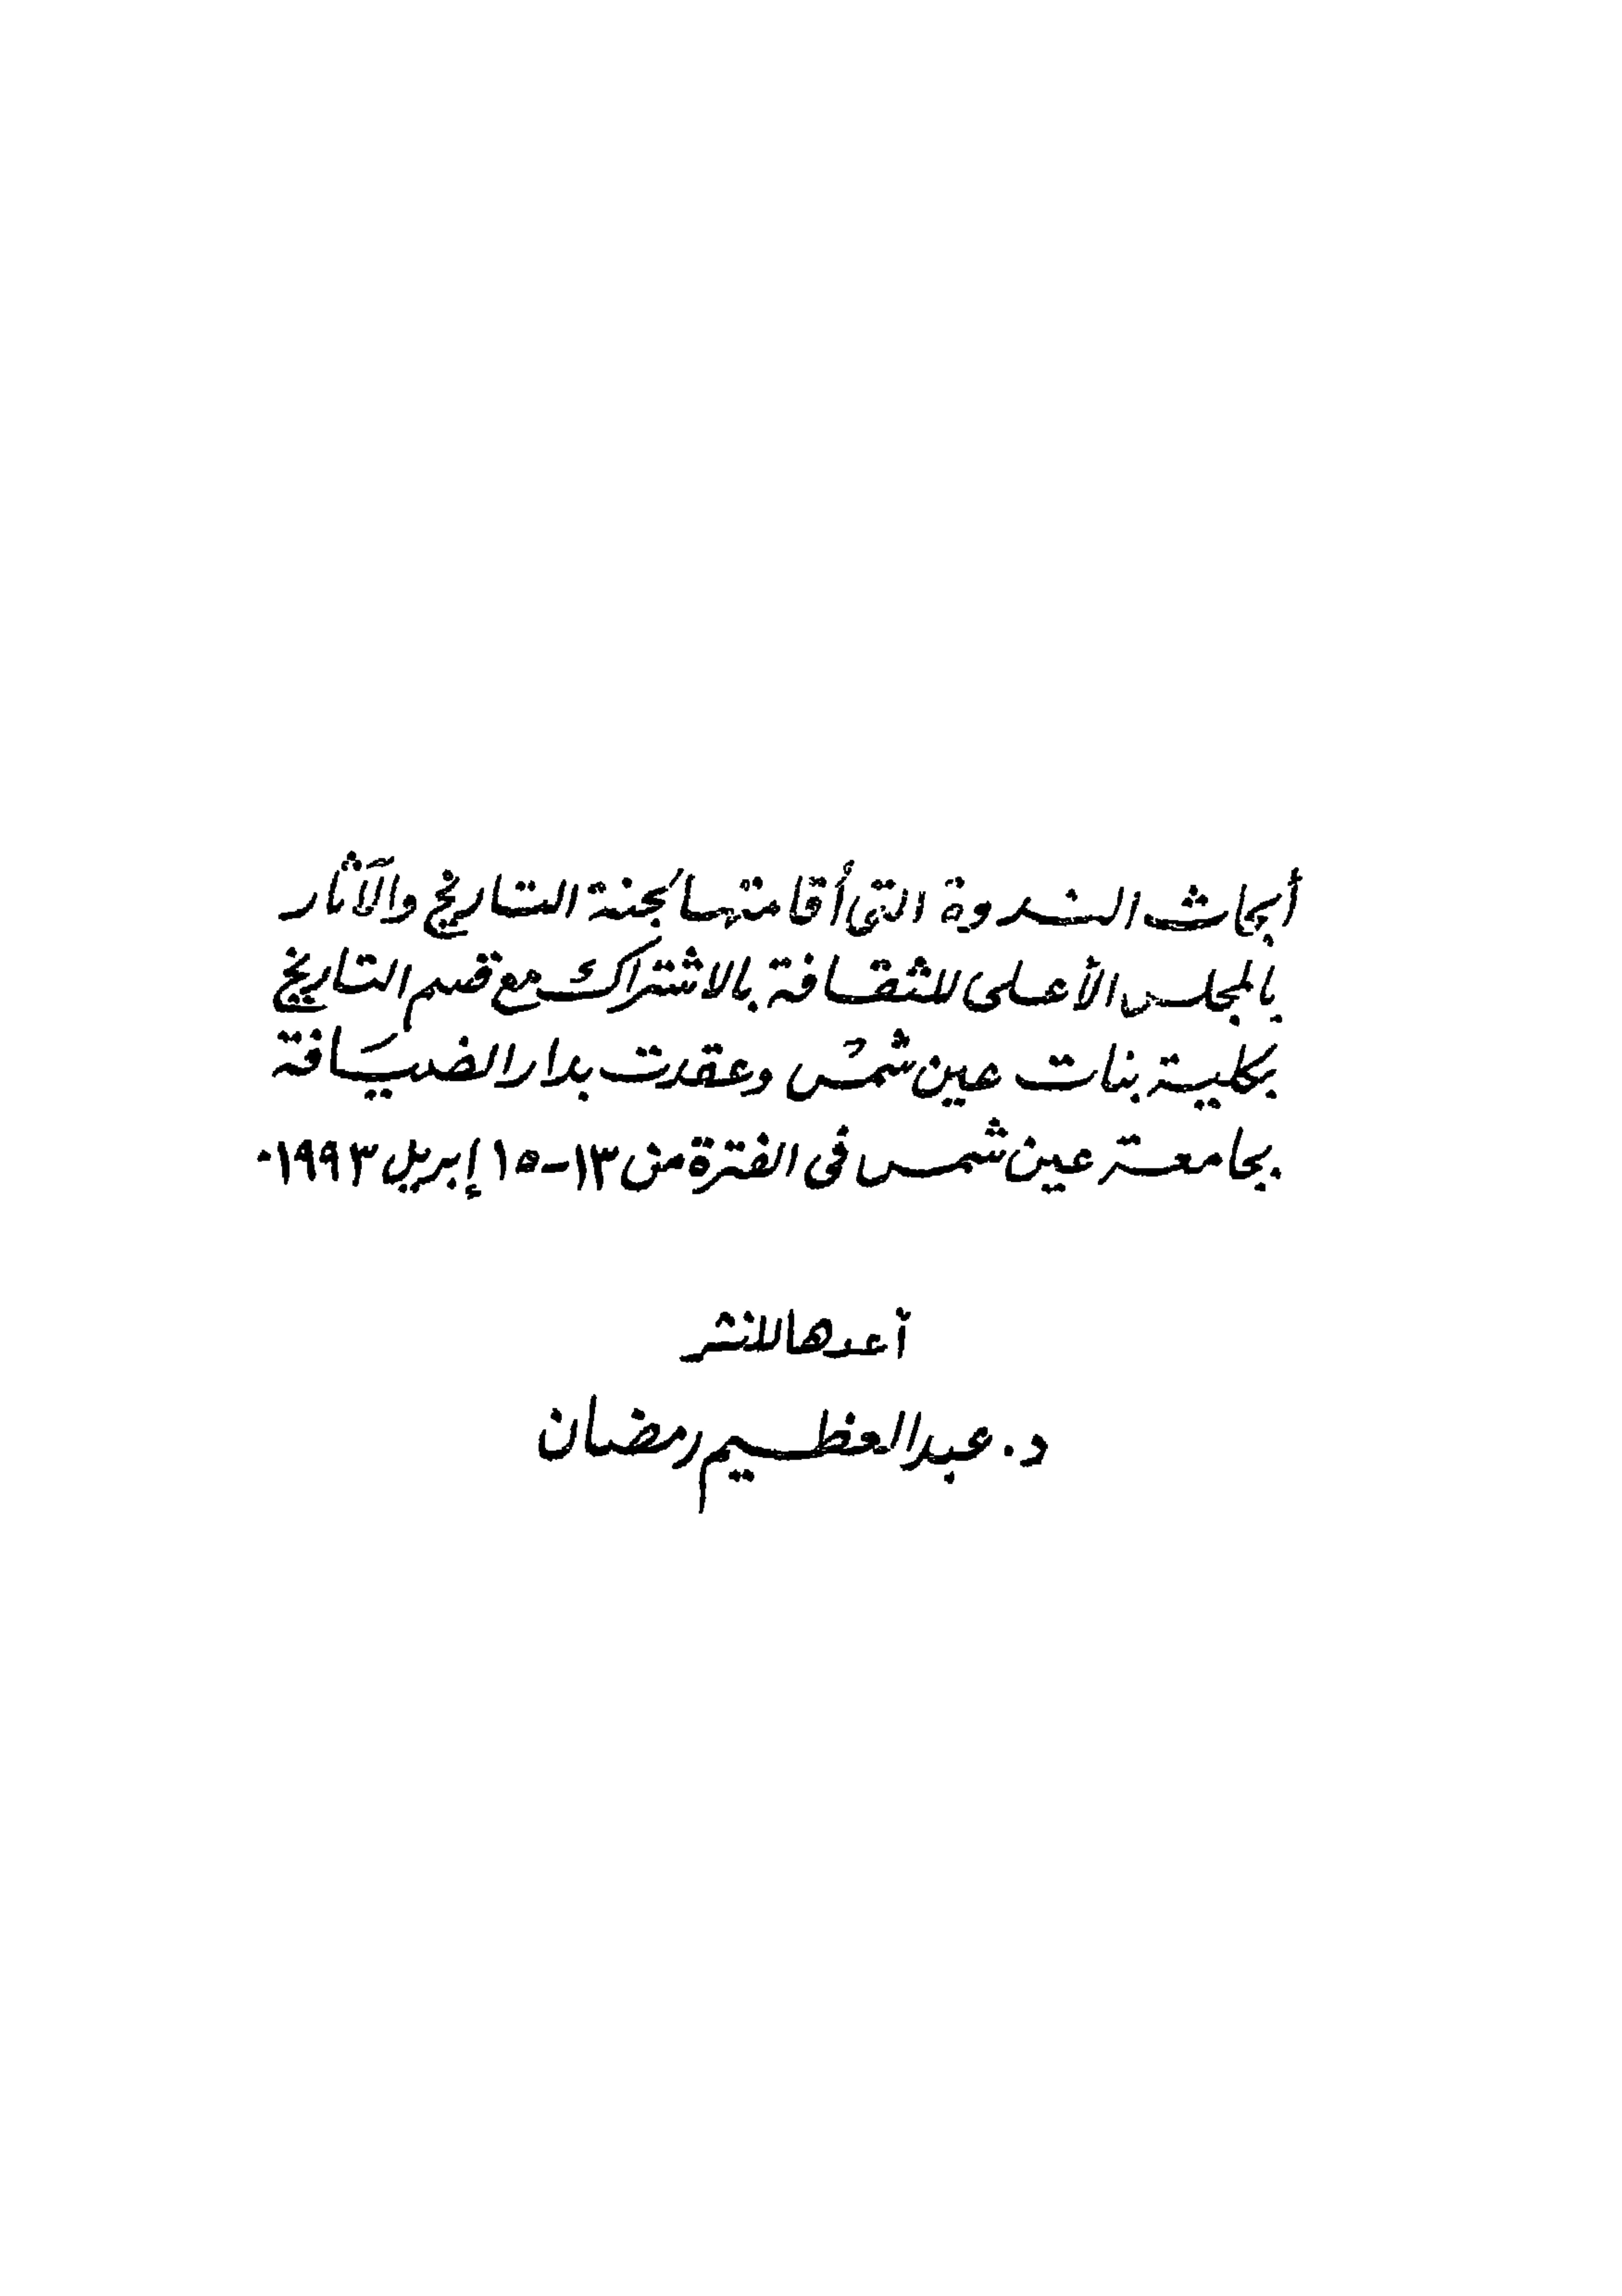 أبحاث الندوة التى أقامتها لجنة التاريخ والآثار
بالمجلس الأعلى للثقافة بالاشتراك مع قسم التاريخ
بكلية بنات عين شمس وعقدت بدار الضيافة
بجامعة عين شمس فى الفترة من ١٣-١٥ إبريل ١٩٩٣.
أعدها للنشر
د. عبد العظيم رمضان